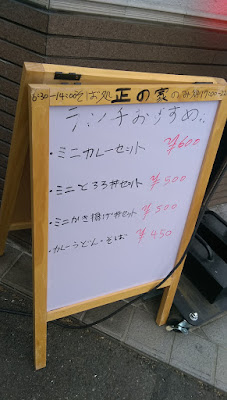 6:30-14:00そば処 正の家
ランチおすすめ
・ミニカレーセット ¥600
・ミニとろろ丼セット ¥500
・ミニかき揚げ丼セット ¥500
・カレーうどん・そば ¥450